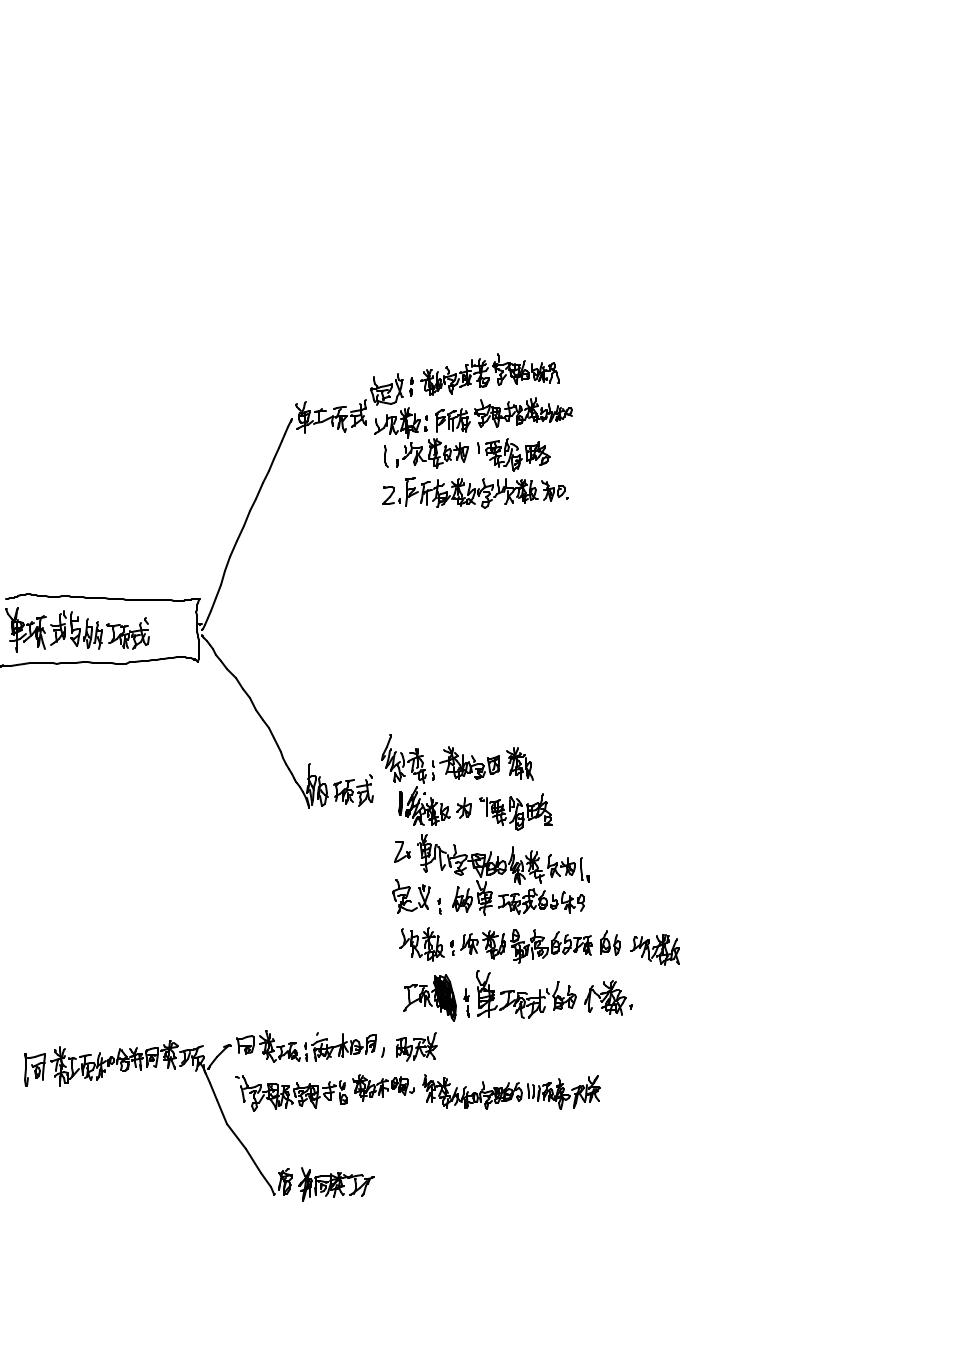 单项式
定义：数字或者字母的积
次数：所有字母指数的和
1.次数为1要省略
2.所有数字次数为0.
单项式与的项式
的项式
系数：数字因数
1.系数为1要省略
2.单个字母的系数为1.
定义：的单项式的和
次数：次数最高的项的次数
项：单项式的个数.
同类项和合并同类项
同类项：两相同，两无关
字母及字母指数相同，系数和字母的顺序无关
同类项